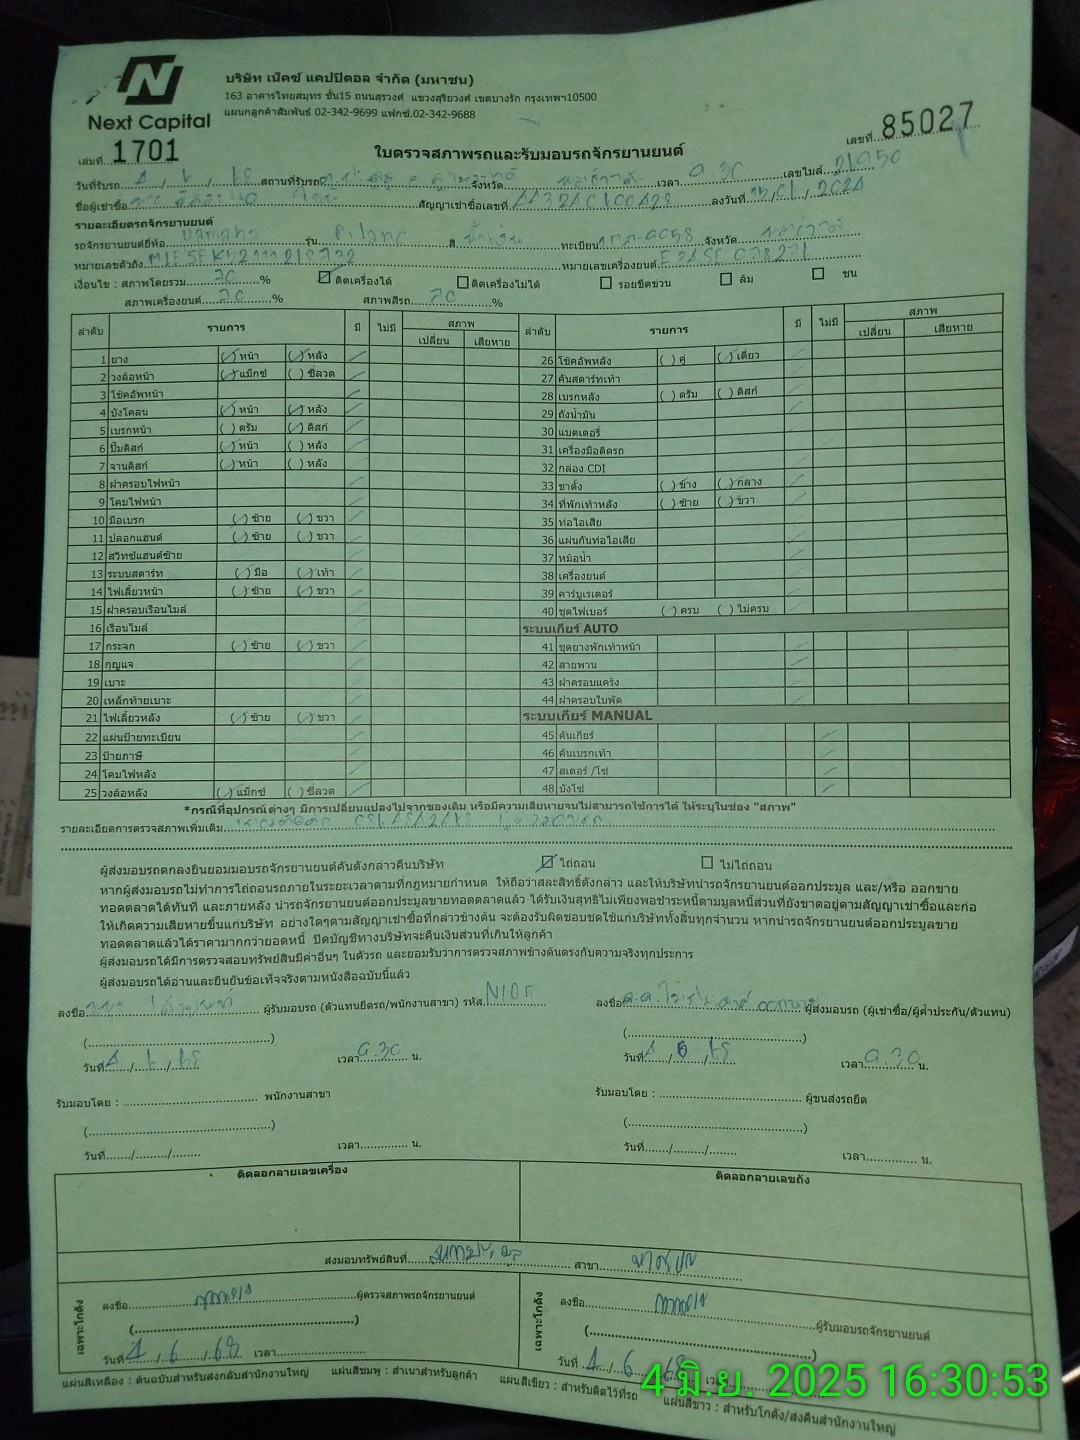 บริษัท เน็คซ์ แคปปิตอล จำกัด (มหาชน)
163 อาคารไทยสมุทร ชั้น15 ถนนสุรวงศ์ แขวงสุริยวงศ์ เขตบางรัก กรุงเทพฯ10500
แผนกลูกค้าสัมพันธ์ 02-342-9699 แฟกซ์.02-342-9688
Next Capital
เล่มที่ 1701
เลขที่ 85027
ใบตรวจสภาพรถและรับมอบรถจักรยานยนต์
วันที่รับรถ 4 / 6 / 68 สถานที่รับรถ จังหวัด เวลา 9.30 เลขไมล์ 21950
ชื่อผู้เช่าซื้อ สัญญาเช่าซื้อเลขที่ ลงวันที่ / / 2024
รายละเอียดรถจักรยานยนต์
รถจักรยานยนต์ยี่ห้อ Yamaha รุ่น สี น้ำเงิน ทะเบียน จังหวัด
หมายเลขตัวถัง หมายเลขเครื่องยนต์
เงื่อนไข : สภาพโดยรวม 70 % ติดเครื่องได้ ติดเครื่องไม่ได้ รอยขีดข่วน ล้ม ชน
สภาพเครื่องยนต์ 70 % สภาพสีรถ 70 %
ลำดับ รายการ มี ไม่มี สภาพ เปลี่ยน เสียหาย ลำดับ รายการ มี ไม่มี สภาพ เปลี่ยน เสียหาย
1 ยาง (/) หน้า (/) หลัง /
2 วงล้อหน้า (/) แม็กซ์ ( ) ซี่ลวด /
3 โช๊คอัพหน้า /
4 บังโคลน (/) หน้า (/) หลัง /
5 เบรกหน้า ( ) ดรัม (/) ดิสก์ /
6 ปั๊มดิสก์ (/) หน้า ( ) หลัง /
7 จานดิสก์ (/) หน้า ( ) หลัง /
8 ฝาครอบไฟหน้า /
9 โคมไฟหน้า /
10 มือเบรก (/) ซ้าย (/) ขวา /
11 ปลอกแฮนด์ (/) ซ้าย (/) ขวา /
12 สวิทซ์แฮนด์ซ้าย /
13 ระบบสตาร์ท (/) มือ (/) เท้า /
14 ไฟเลี้ยวหน้า (/) ซ้าย (/) ขวา /
15 ฝาครอบเรือนไมล์ /
16 เรือนไมล์ /
17 กระจก (/) ซ้าย (/) ขวา /
18 กุญแจ /
19 เบาะ /
20 เหล็กท้ายเบาะ /
21 ไฟเลี้ยวหลัง (/) ซ้าย (/) ขวา /
22 แผ่นป้ายทะเบียน /
23 ป้ายภาษี /
24 โคมไฟหลัง /
25 วงล้อหลัง (/) แม็กซ์ ( ) ซี่ลวด /
26 โช๊คอัพหลัง ( ) คู่ (/) เดี่ยว /
27 คันสตาร์ทเท้า /
28 เบรกหลัง ( ) ดรัม ( ) ดิสก์ /
29 ถังน้ำมัน /
30 แบตเตอรี่ /
31 เครื่องมือติดรถ
32 กล่อง CDI /
33 ขาตั้ง ( ) ข้าง ( ) กลาง /
34 ที่พักเท้าหลัง ( ) ซ้าย ( ) ขวา /
35 ท่อไอเสีย /
36 แผ่นกันท่อไอเสีย /
37 หม้อน้ำ /
38 เครื่องยนต์ /
39 คาร์บูเรเตอร์ /
40 ชุดไฟเบอร์ ( ) ครบ ( ) ไม่ครบ /
ระบบเกียร์ AUTO
41 ชุดยางพักเท้าหน้า /
42 สายพาน /
43 ฝาครอบแคร้ง /
44 ฝาครอบใบพัด /
ระบบเกียร์ MANUAL
45 คันเกียร์ /
46 คันเบรกเท้า /
47 สเตอร์ /โซ่ /
48 บังโซ่ /
*กรณีที่อุปกรณ์ต่างๆ มีการเปลี่ยนแปลงไปจากของเดิม หรือมีความเสียหายจนไม่สามารถใช้การได้ ให้ระบุในช่อง "สภาพ"
รายละเอียดการตรวจสภาพเพิ่มเติม
ผู้ส่งมอบรถตกลงยินยอมมอบรถจักรยานยนต์คันดังกล่าวคืนบริษัท ไถ่ถอน ไม่ไถ่ถอน
หากผู้ส่งมอบรถไม่ทำการไถ่ถอนรถภายในระยะเวลาตามที่กฎหมายกำหนด ให้ถือว่าสละสิทธิ์ดังกล่าว และให้บริษัทนำรถจักรยานยนต์ออกประมูล และ/หรือ ออกขาย
ทอดตลาดได้ทันที และภายหลัง นำรถจักรยานยนต์ออกประมูลขายทอดตลาดแล้ว ได้รับเงินสุทธิไม่เพียงพอชำระหนี้ตามมูลหนี้ส่วนที่ยังขาดอยู่ตามสัญญาเช่าซื้อและก่อ
ให้เกิดความเสียหายขึ้นแก่บริษัท อย่างใดๆตามสัญญาเช่าซื้อที่กล่าวข้างต้น จะต้องรับผิดชอบชดใช้แก่บริษัททั้งสิ้นทุกจำนวน หากนำรถจักรยานยนต์ออกประมูลขาย
ทอดตลาดแล้วได้ราคามากกว่ายอดหนี้ ปิดบัญชีทางบริษัทจะคืนเงินส่วนที่เกินให้ลูกค้า
ผู้ส่งมอบรถได้มีการตรวจสอบทรัพย์สินมีค่าอื่นๆ ในตัวรถ และยอมรับว่าการตรวจสภาพข้างต้นตรงกับความจริงทุกประการ
ผู้ส่งมอบรถได้อ่านและยืนยันข้อเท็จจริงตามหนังสือฉบับนี้แล้ว
ลงชื่อ ผู้รับมอบรถ (ตัวแทนยึดรถ/พนักงานสาขา) รหัส ลงชื่อ ผู้ส่งมอบรถ (ผู้เช่าซื้อ/ผู้ค้ำประกัน/ตัวแทน)
( ) ( )
วันที่ 4 / 6 / 68 เวลา 9.30 น. วันที่ 4 / 6 / 68 เวลา 9.30 น.
รับมอบโดย : พนักงานสาขา รับมอบโดย : ผู้ขนส่งรถยึด
( ) ( )
วันที่ / / เวลา น. วันที่ / / เวลา น.
ติดลอกลายเลขเครื่อง ติดลอกลายเลขถัง
ส่งมอบทรัพย์สินที่ สาขา
เฉพาะโกดัง ลงชื่อ ผู้ตรวจสภาพรถจักรยานยนต์ เฉพาะโกดัง ลงชื่อ ผู้รับมอบรถจักรยานยนต์
( ) ( )
วันที่ 4 / 6 / 68 เวลา วันที่ 4 / 6 / 68 เวลา
แผ่นสีเหลือง : ต้นฉบับสำหรับส่งกลับสำนักงานใหญ่ แผ่นสีชมพู : สำเนาสำหรับลูกค้า แผ่นสีเขียว : สำหรับติดไว้ที่รถ แผ่นสีขาว : สำหรับโกดัง/ส่งคืนสำนักงานใหญ่
4 มิ.ย. 2025 16:30:53